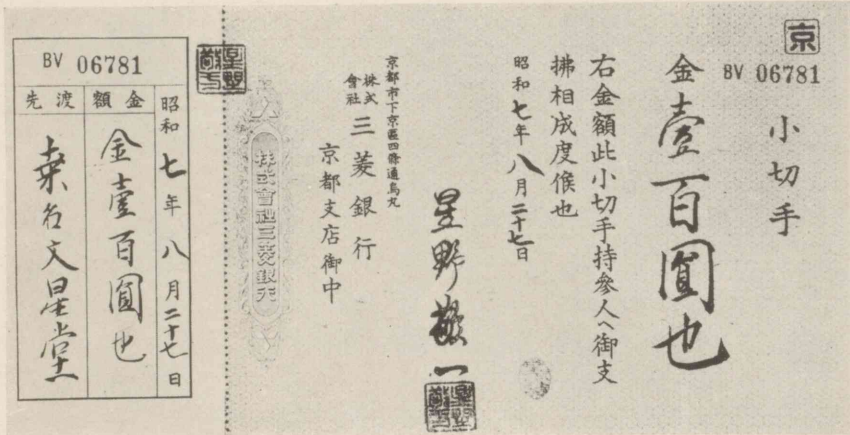 京
BV 06781
小切手
金壹百圓也
右金額此小切手持參人へ御支
拂相成度候也
昭和七年八月二十七日
星野敬一
京都市下京區四條通烏丸
株式會社三菱銀行
京都支店御中
株式會社三菱銀行
BV 06781
昭和七年八月二十七日
金額
金壹百圓也
渡先
桑名文星堂